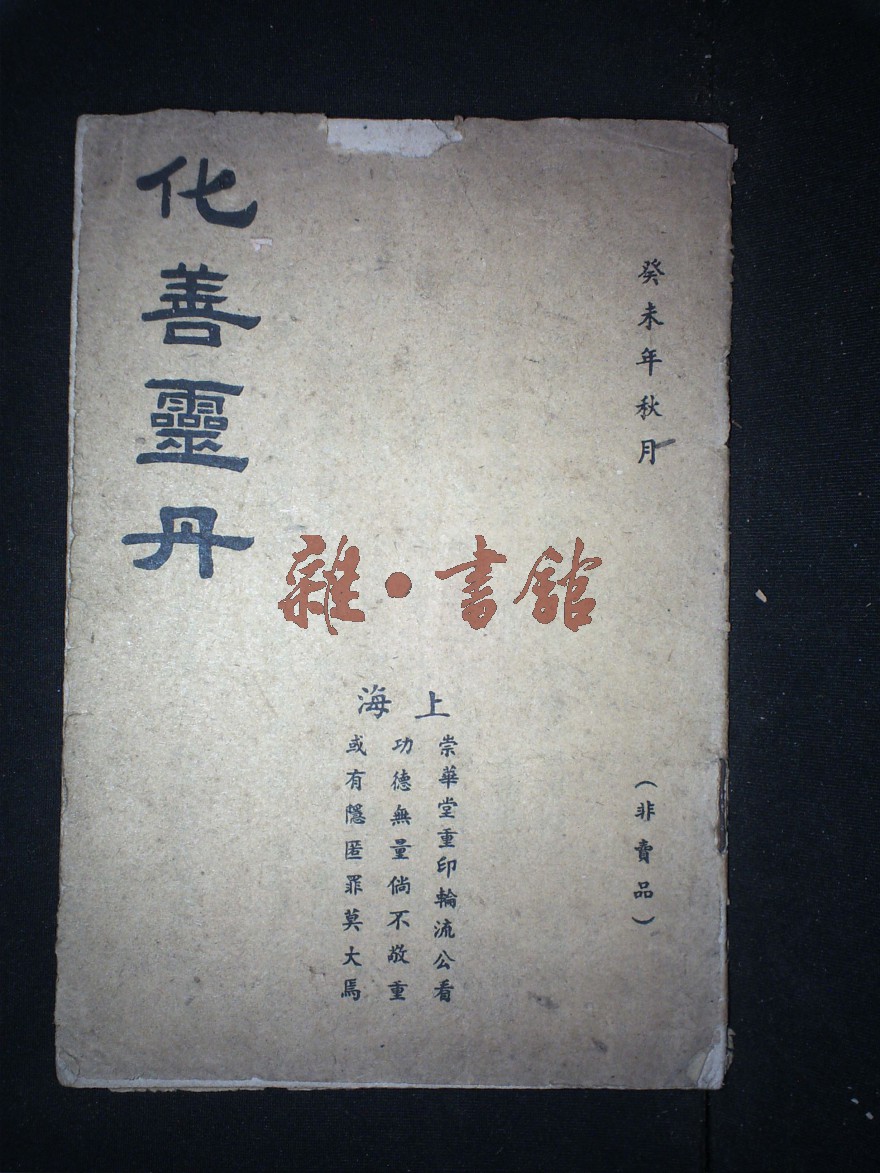 癸未年秋月
(非賣品)
上海
崇華堂重印輪流公看
功德無量倘不敬重
或有隱匿罪莫大焉
化善靈丹
雜·書館